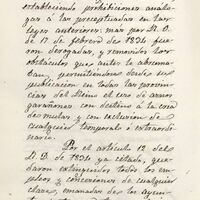 estableciendo prohibiciones análo-
gas á las preceptuadas en las
leyes anteriores; mas por R. D.
de 17 de febrero de 1834 que-
daron derogadas, y removidos los
obstáculos que antes la abruma-
ban, permitiendose desde su
publicacion en todas las provin-
cias del Reino el uso de asnos
garañones con destino á la cria
de mulas y con exclusion de
cualquier temporal ó extraordi-
nario.
Por el artículo 12 del
R. D. de 1834 ya citado, que-
daron extinguidos todos los em-
pleos y comisiones de cualquier
clase, emanadas de los ayun-